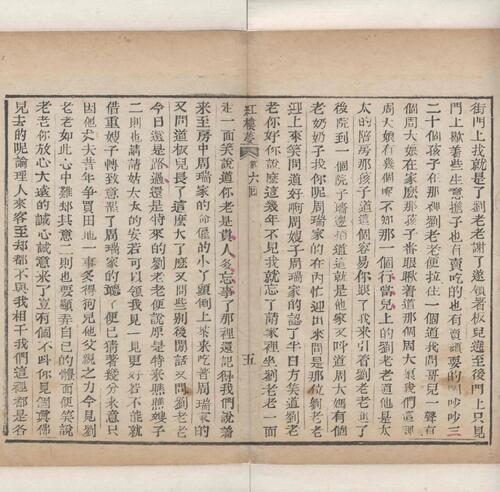 街門上找就是了劉老老謝了遂領著板兒遶至後門上只見
門上歇著些生意擔子也有賣吃的也有賣頑耍的鬧吵吵三
二十個孩子在那裡劉老老便拉住一個道我問哥兒一聲有
個周大娘在家麽那孩子翻眼瞅着道那個周大娘我們這裡
周大娘有幾個呢不知那一個行當兒上的劉老老道他是太
太的陪房那孩子道這個容易你跟了我來引着劉老老進了
後院到一個院子墻邊指道這就是他家又叫道周大媽有個
老奶奶子找你呢周瑞家的在內忙迎出來問是那位劉老老
迎上來笑問道好啊周嫂子周瑞家的認了半日方笑道劉老
老你好你說麽這幾年不見我就忘了請家裡坐劉老老一面
紅樓夢 第六回 五
走一面笑說道你老是貴人多忘事了那裡還記得我們說著
來至房中周瑞家的命僱的小丫頭倒上茶來吃着周瑞家的
又問道板兒長了這麽大了麽又問些別後閒話又問劉老老
今日還是路過還是特來的劉老老便說原是特來瞧瞧嫂子
二則也請請姑太太的安若可以領我見一見更好若不能就
借重嫂子轉致意罷了周瑞家的聽了便已猜著幾分來意只
因他丈夫昔年爭買田地一事多得狗兒他父親之力今見劉
老老如此心中難却其意二則也要顯弄自己的體面便笑說
老老你放心大遠的誠心誠意來了豈有個不叫你見個眞佛
兒去的呢論理人來客至却都不與我相干我們這裡都是各